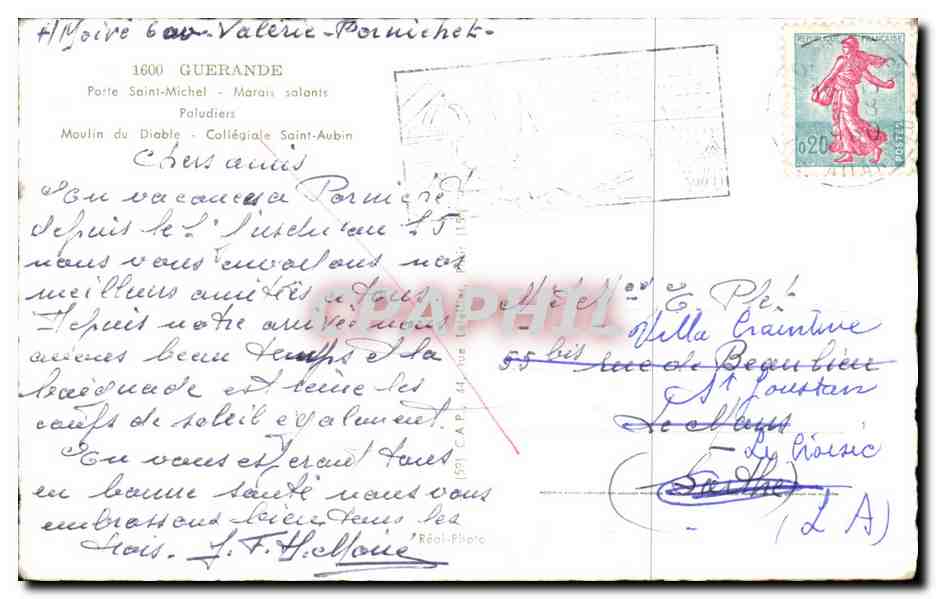 H Moiré 6 av. Valérie - Pornichet -
1600 GUERANDE
Porte Saint-Michel - Marais salants
Paludiers
Moulin du Diable - Collégiale Saint-Aubin
Chers amis
En vacances a Pornichet
depuis le 2 jusqu'au 25
nous vous envoillons nos
meilleurs amitiées a tous
Depuis notre arrivée nous
avions beau temps et la
baignade est bonne les
coups de soleil egalement.
En vous esperant tous
en bonne santé nous vous
embrassons bien tous les
trois. J. F. H. Moiré
Réal-Photo
REPUBLIQUE FRANÇAISE
0,20
POSTES
M et Mme E Plet
Villa Craintive
55 bis rue de Beaulieu
St Goustan
Le Mans
Le Croisic
(Sarthe)
(L A)
CPAPHIL